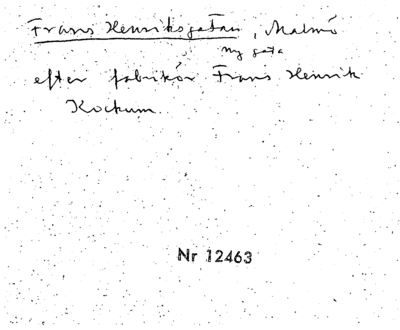 Frans Henriksgatan, Malmö
ny gata
efter fabrikör Frans Henrik
Kockum
Nr 12463